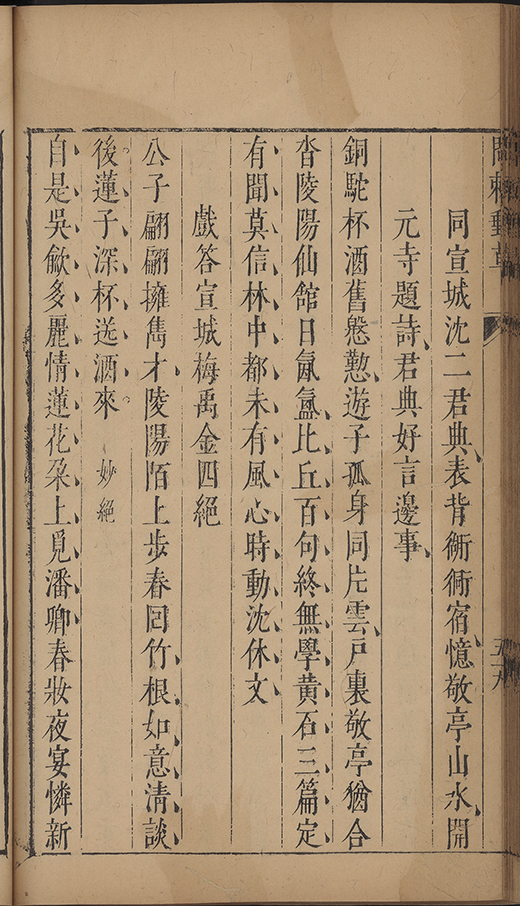 問棘郵草
同宣城沈二君典表背衚衕宿憶敬亭山水開
元寺題詩君典好言邊事
銅駝杯酒舊慇懃遊子孤身同片雲戸裏敬亭猶合
杳陵陽仙館日氤氳比丘百句終無學黄石三篇定
有聞莫信林中都未有風心時動沈休文
戲答宣城梅禹金四絕
公子翩翩擁雋才陵陽陌上步春囘竹根如意清談
後蓮子深杯送酒來 妙絕
自是吳歈多麗情蓮花朶上覓潘卿春妝夜宴憐新